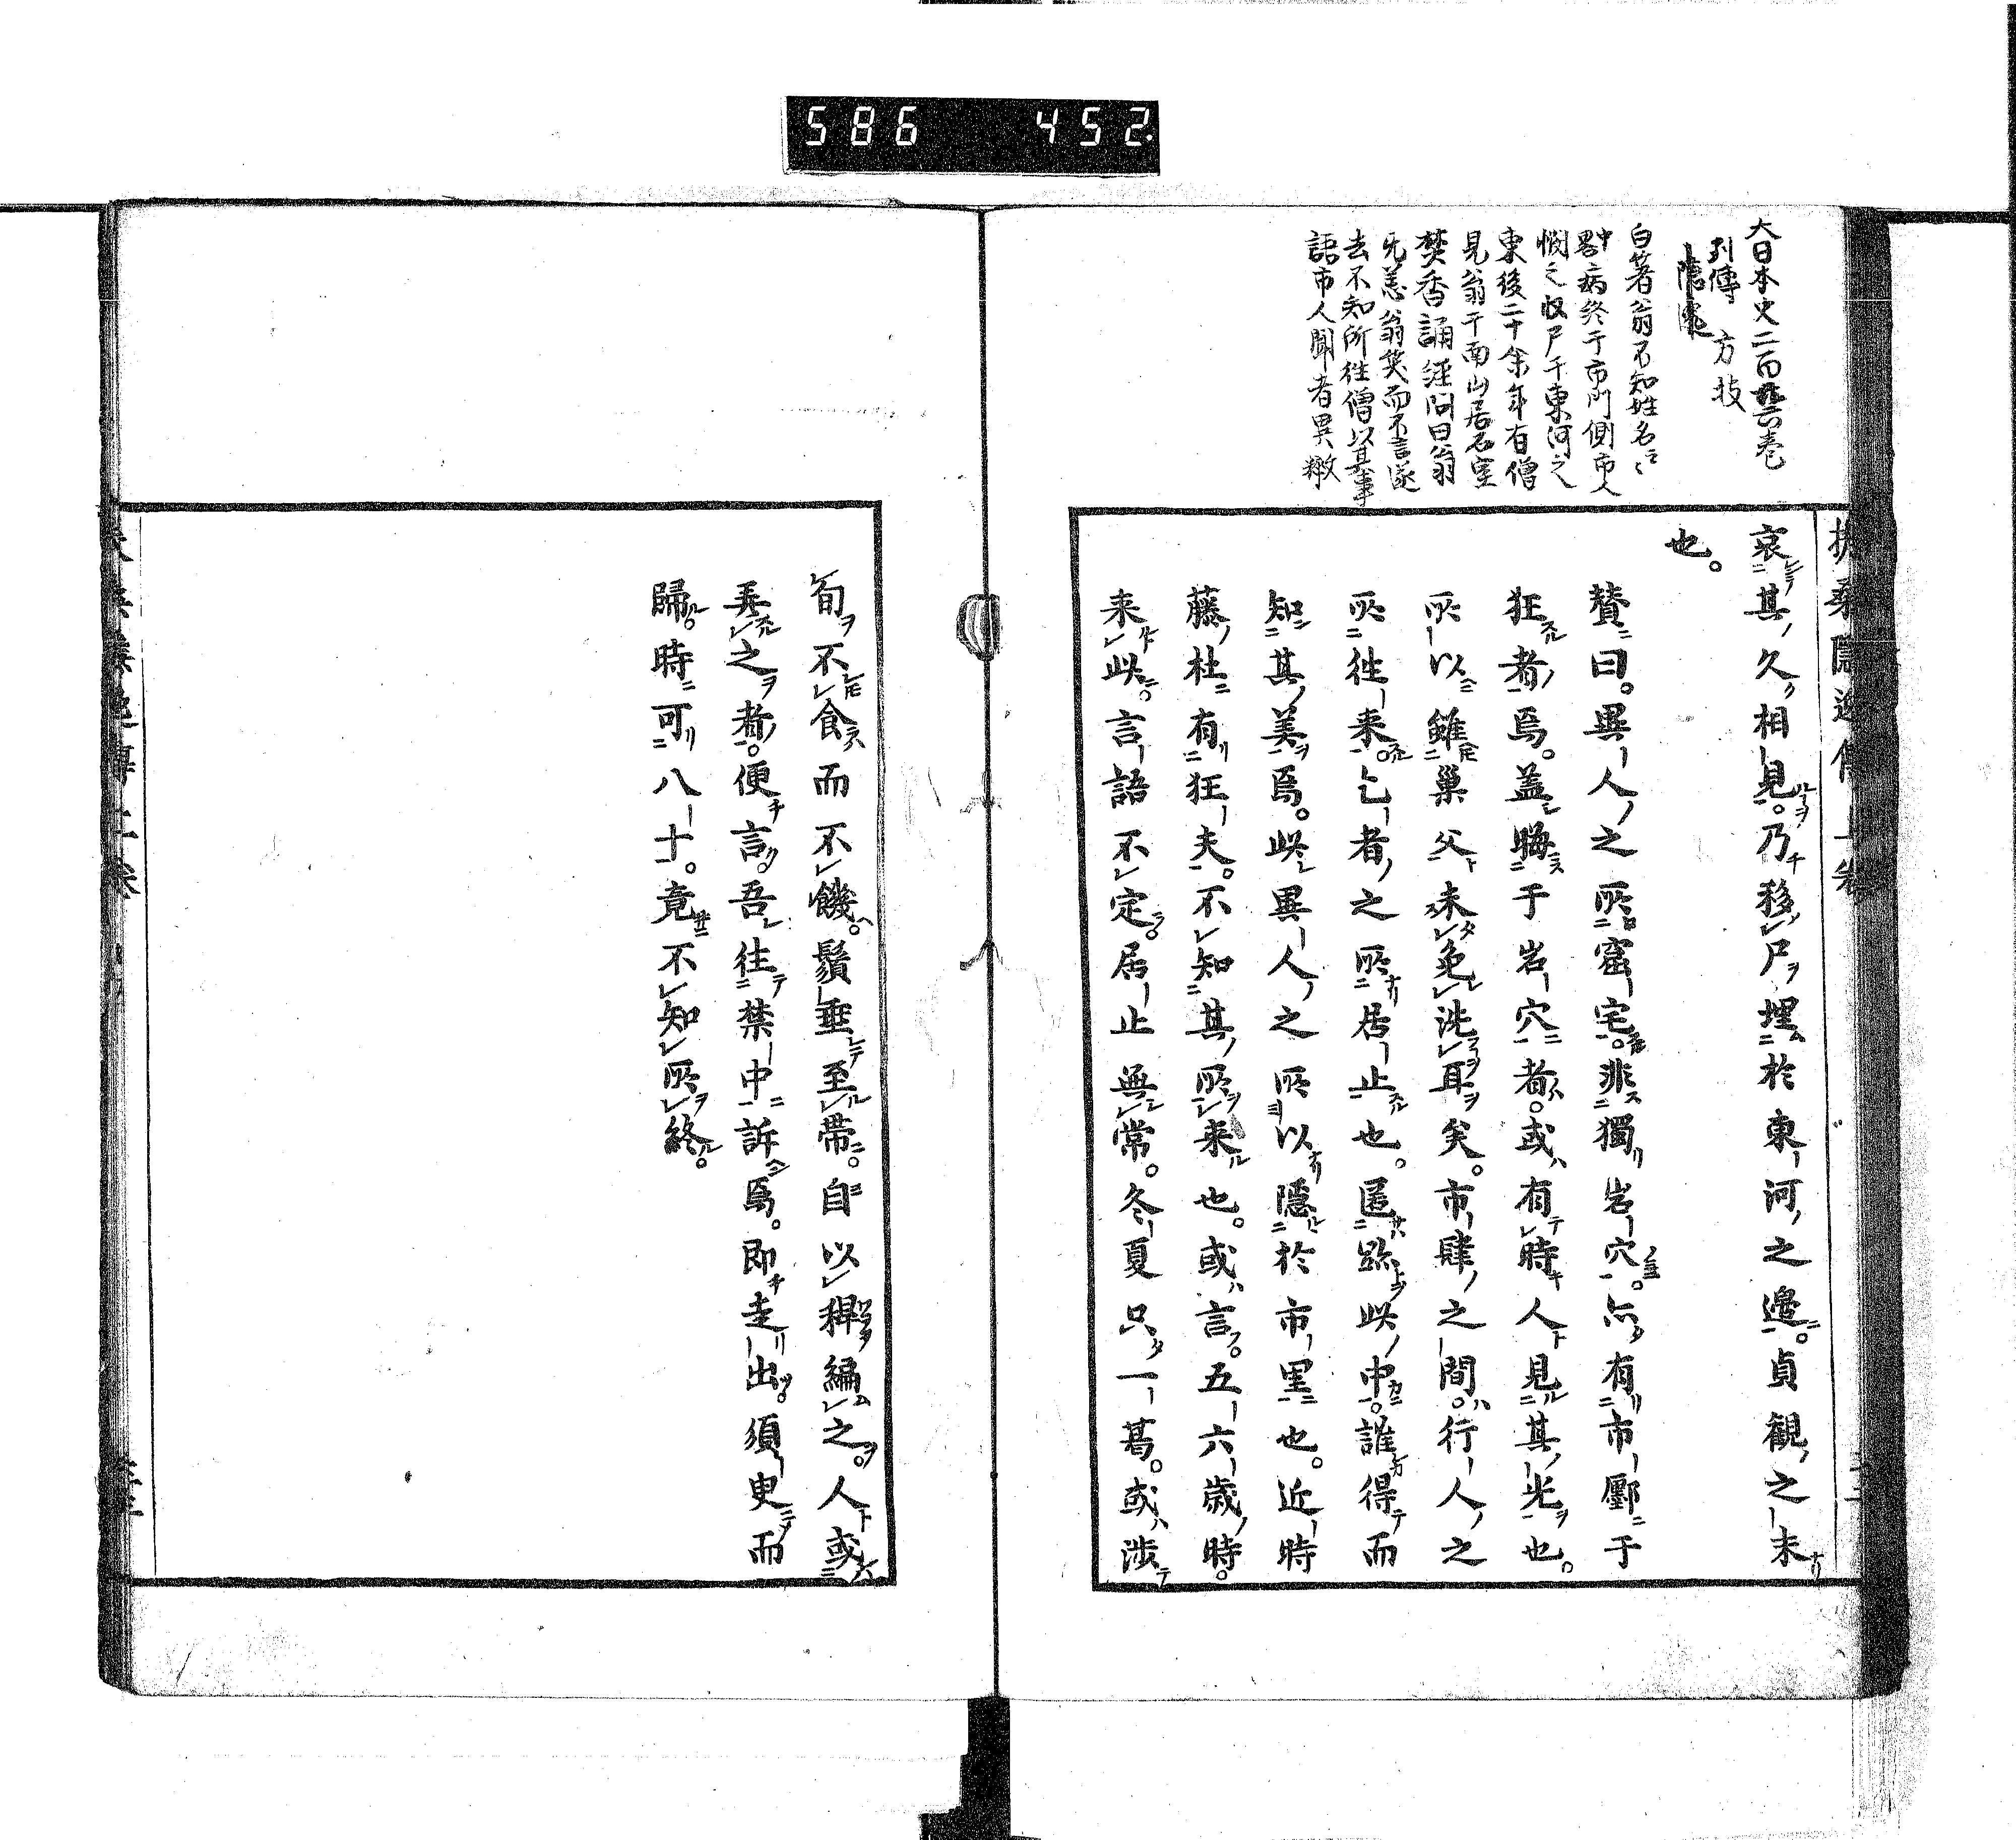 586 452
大日本史二百廿六巻
列傳 方技
隱逸
白箸翁不知姓名云〻
中畧病終于市門側市人
憫之収尸于東河之
東後二十余年有僧
見翁于南山居石室
焚香誦經問曰翁
无恙翁笑而不言遂
去不知所往僧以其事
語市人聞者異概
扶桑隱逸傳上卷
哀其久相見。乃移尸埋於東河之邊。貞觀之末
也。
贊曰。異人之所窟宅。非獨岩穴。亦有市鄽于
狂者焉。蓋晦于岩穴者。或有時人見其光也。
所以雖巢父未免洗耳矣。市肆之間。行人之
所往来。乞者之所居止也。匿跡此中。誰得而
知其美焉。此異人之所以隱於市里也。近時
藤杜有狂夫。不知其所来也。或言。五六歳時。
来此。言語不定。居止無常。冬夏只一葛。或渉
旬不食而不饑。鬚垂至帶。自以稗編之。人或
弄之者。便言吾往禁中訴焉。即走出。須臾而
歸。時可八十。竟不知所終。